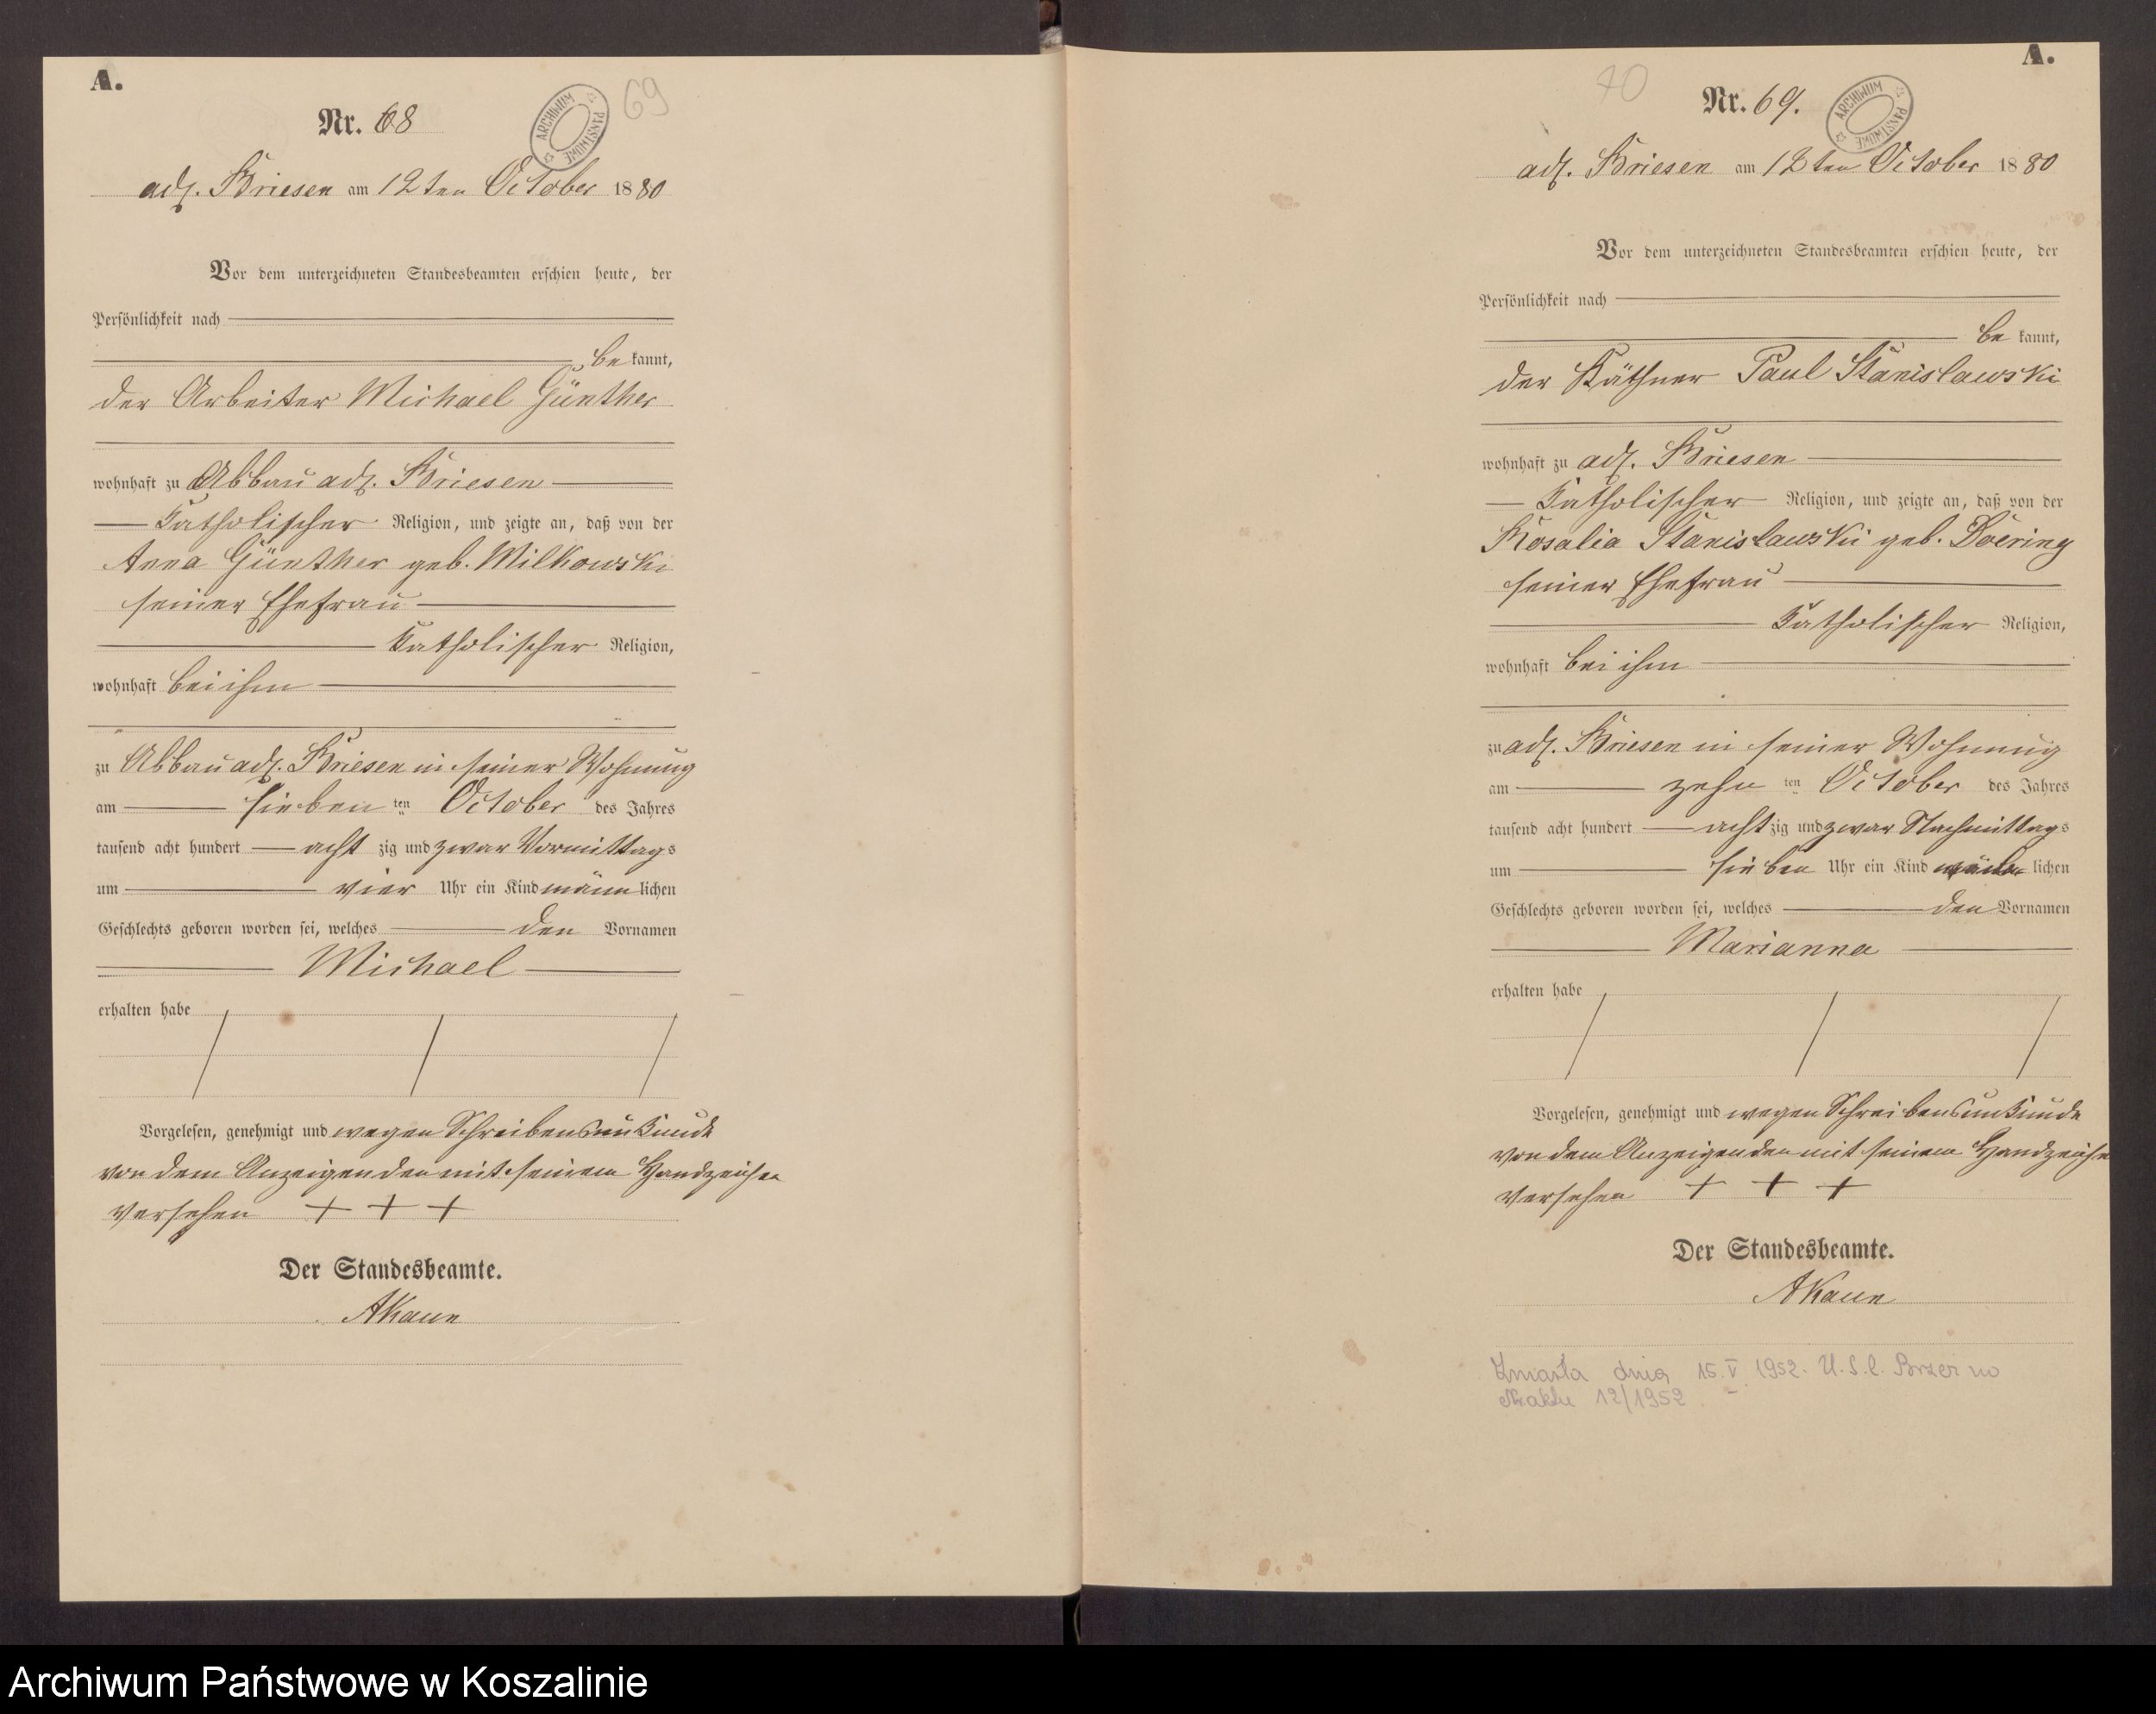 A.
Nr. 68
69
ARCHIWUM PAŃSTWOWE
adl. Briesen am 12ten October 1880
Vor dem unterzeichneten Standesbeamten erschien heute, der
Persönlichkeit nach
bekannt,
der Arbeiter Michael Günther
wohnhaft zu Abbau adl. Briesen
katholischer Religion, und zeigte an, daß von der
Anna Günther geb. Milkowski
seiner Ehefrau
katholischer Religion,
wohnhaft bei ihm
zu Abbau adl. Briesen in seiner Wohnung
am sieben ten October des Jahres
tausend acht hundert acht zig und zwar Vormittags
um vier Uhr ein Kind männlichen
Geschlechts geboren worden sei, welches den Vornamen
Michael
erhalten habe
Vorgelesen, genehmigt und wegen Schreibensunkunde
von dem Anzeigenden mit seinem Handzeichen
versehen + + +
Der Standesbeamte.
AKaun
A.
70
Nr. 69.
ARCHIWUM PAŃSTWOWE
adl. Briesen am 12ten October 1880
Vor dem unterzeichneten Standesbeamten erschien heute, der
Persönlichkeit nach
bekannt,
der Käthner Paul Stanislawski
wohnhaft zu adl. Briesen
katholischer Religion, und zeigte an, daß von der
Rosalia Stanislawski geb. Doering
seiner Ehefrau
katholischer Religion,
wohnhaft bei ihm
zu adl. Briesen in seiner Wohnung
am zehn ten October des Jahres
tausend acht hundert acht zig und zwar Nachmittags
um sieben Uhr ein Kind lichen
Geschlechts geboren worden sei, welches den Vornamen
Marianna
erhalten habe
Vorgelesen, genehmigt und wegen Schreibensunkunde
von dem Anzeigenden mit seinem Handzeichen
versehen + + +
Der Standesbeamte.
AKaun
Zmarła dnia 15.V.1952. U.S.C. Brzeźno
Nr aktu 12/1952
Archiwum Państwowe w Koszalinie